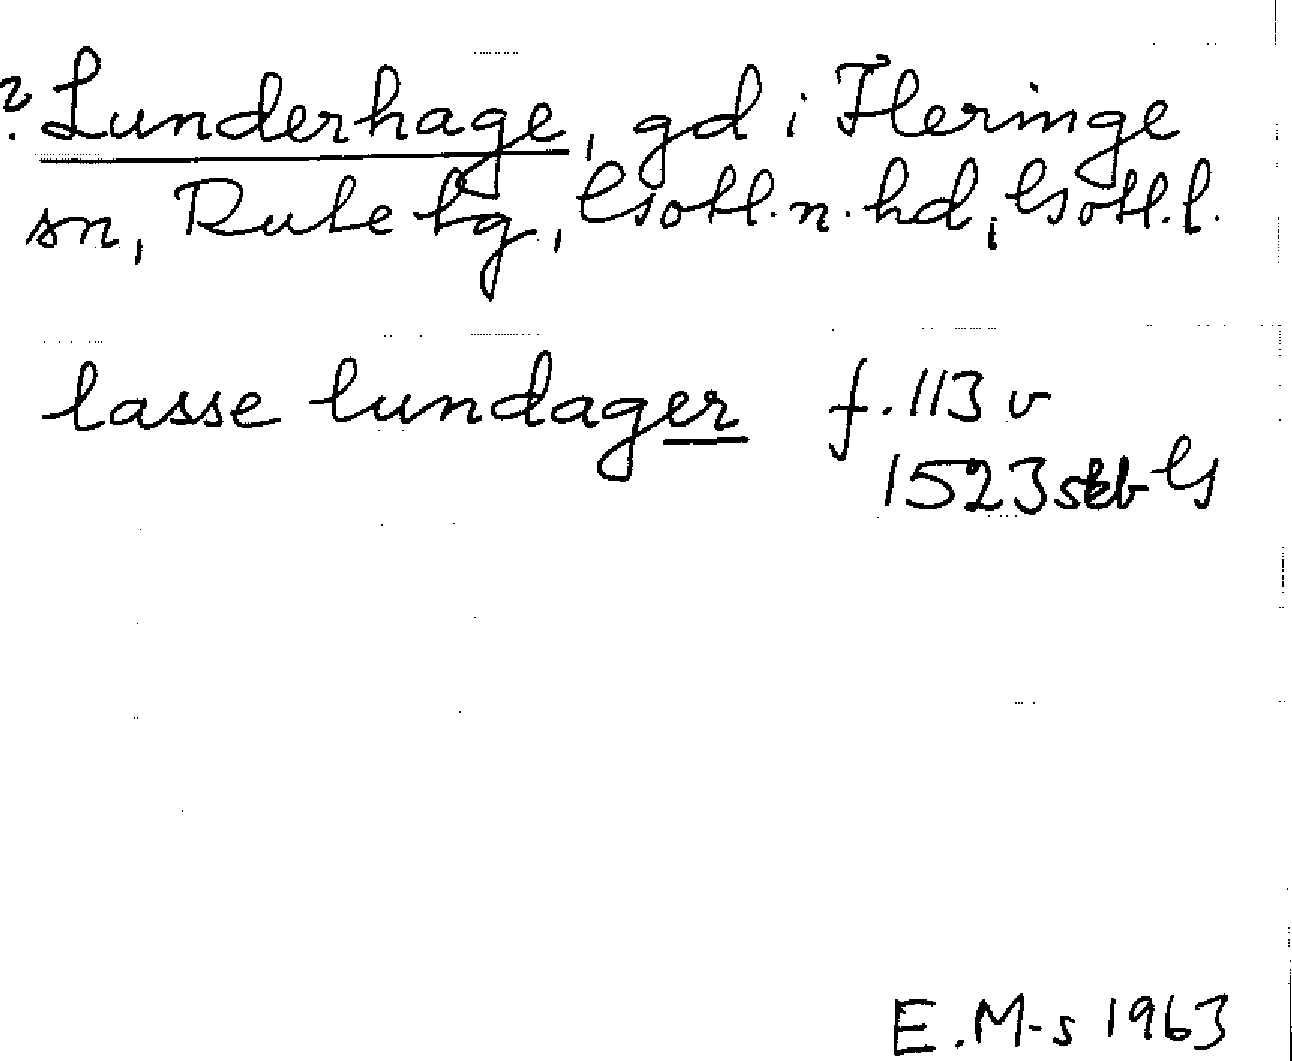 ? Lunderhage, gd i Fleringe
sn, Rute tg, Gotl. n. hd, Gotl. l.
lasse lundager f. 113 v
1523 skb G
E. M-s 1963